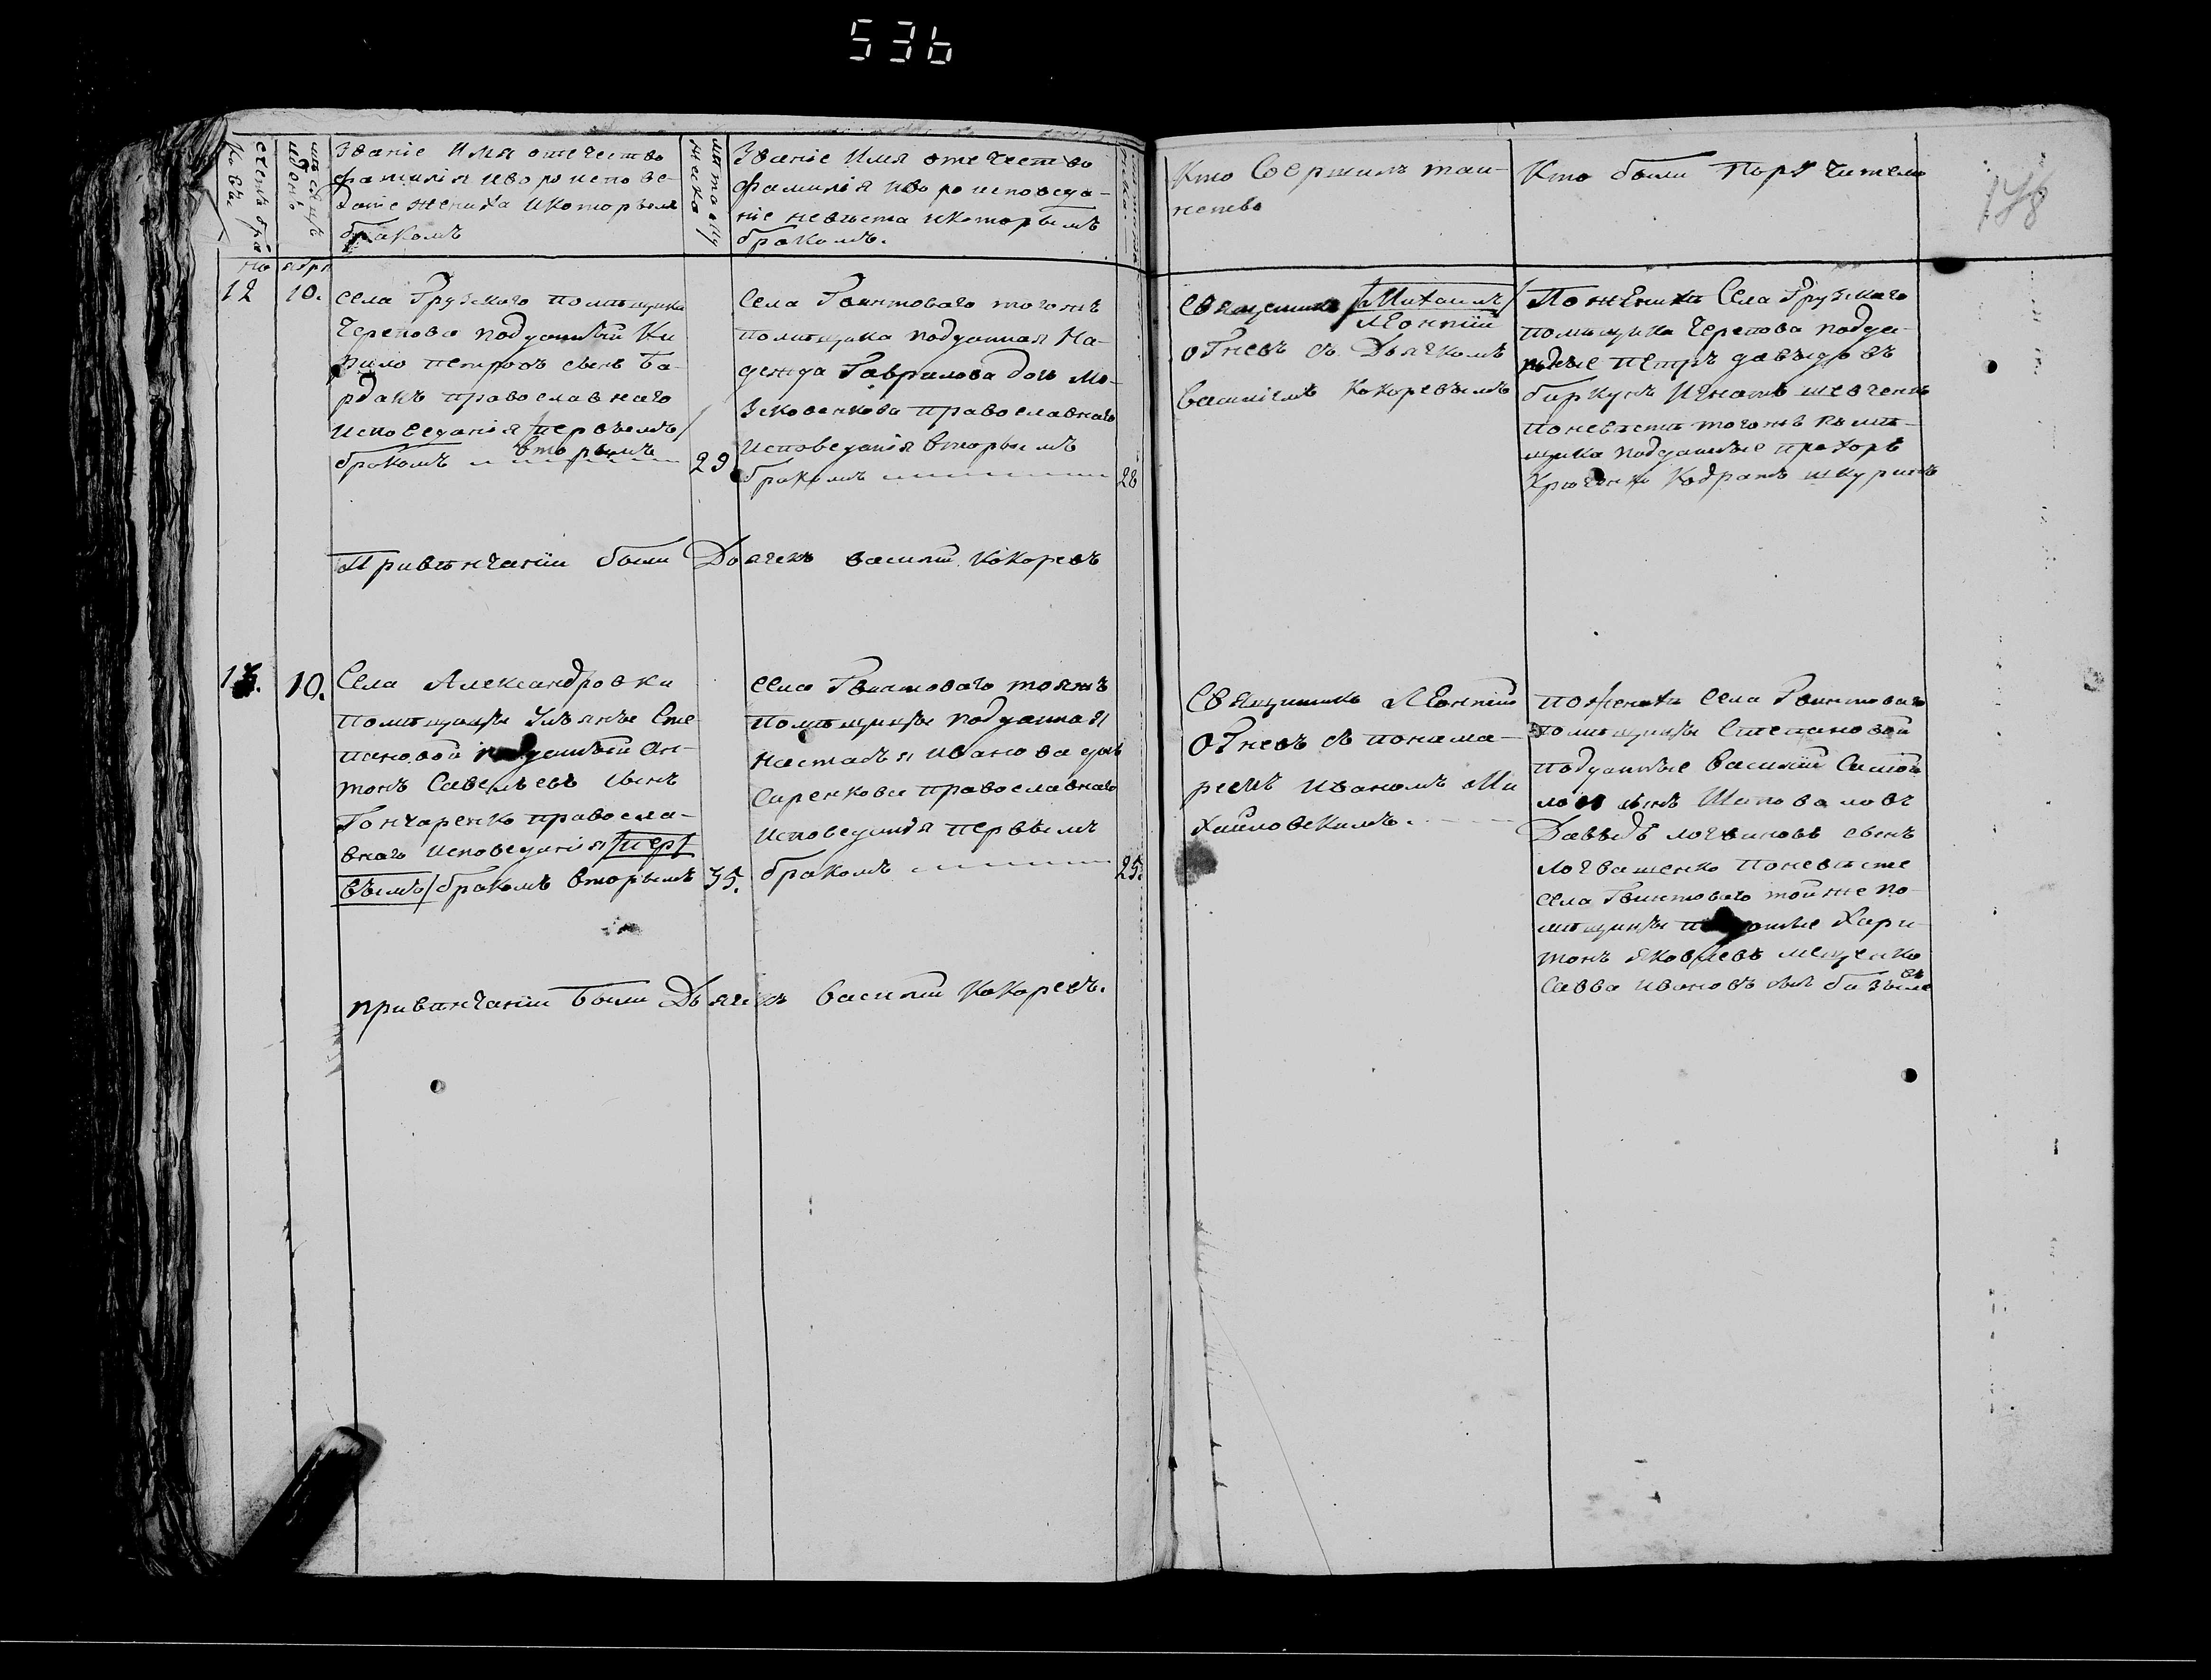 536
178
Счетъ бра
ковъ
Званіе Имя отечество
фамилія и вероиспове-
даніе жениха и которымъ
бракомъ
Званіе Имя отечество
фамилія и вероисповеда-
ніе невѣста и которымъ
бракомъ.
Кто Совершилъ таи-
нство
Кто были Поручители
Но ября
12
10.
села Грузского помѣщика
Черепова подданный Ки
рило петровъ сынъ Ба-
рданъ православнаго
исповеданія первымъ
вторымъ
бракомъ
29
Села Гвинтоваго тогожъ
помѣщика подданная На-
дежда Гаврилова дочь Мо-
сковенкова православнаго
исповеданія вторымъ
бракомъ
28
Священникъ Михаилъ
Леонтій
Огневъ съ Дьячкомъ
Василіемъ Кокоревымъ
По женихѣ Села Грузкаго
помѣщика Черепова подда-
нные петръ давыдовъ
биркунъ Игнатъ шевченко
поневѣсти тогожъ помѣ-
щика подданные прохоръ
Кодратъ
Привѣнчаніи были Дьячекъ василій Кокоревъ
13.
10.
Села Александровки
помѣщицы Ульяны Сте-
пановой подданный Ан-
тонъ Савельевъ сынъ
Гончаренко правосла-
внаго исповеданія пер
вымъ бракомъ вторымъ
35.
села Гвинтоваго тояжъ
помѣщицы подданная
Настасья иванова дочь
Сиренкова православнаго
исповеданія первымъ
бракомъ
25.
Священникъ Леонтій
Огневъ съ понама-
ремъ иваномъ Ми
хайловскимъ.
поженихѣ села Гвинтоваго
помѣщицы Степановой
подданные Василій
сынъ Шаповаловъ
Давыдъ логвиновъ сынъ
логвиненко поневѣсте
села Гвинтоваго тойже по-
мѣщицы подданные Хари-
тонъ яковлевъ мащенко
Савва ивановъ сынъ
привѣнчаніи были Дьячекъ василій Кокоревъ.